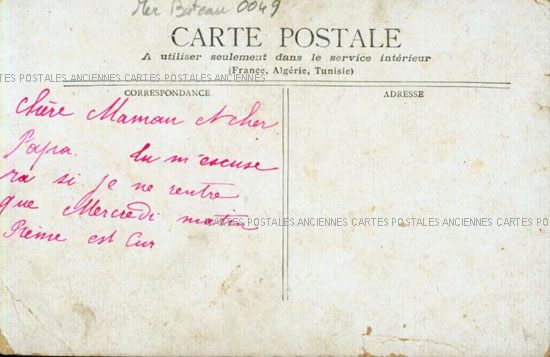 Mer Bateau 0049
CARTE POSTALE
A utiliser seulement dans le service intérieur
(France, Algérie, Tunisie)
CARTES POSTALES ANCIENNES CARTES POSTALES ANCIENNES CARTES POSTALES ANCIENNES CARTES POSTALES
CORRESPONDANCE
ADRESSE
chère Maman et cher
Papa. tu m'escuse
ra si je ne rentre
que Mercredi matin
CARTES POSTALES ANCIENNES CARTES POSTALES ANCIENNES CARTES POSTALES
Reine est